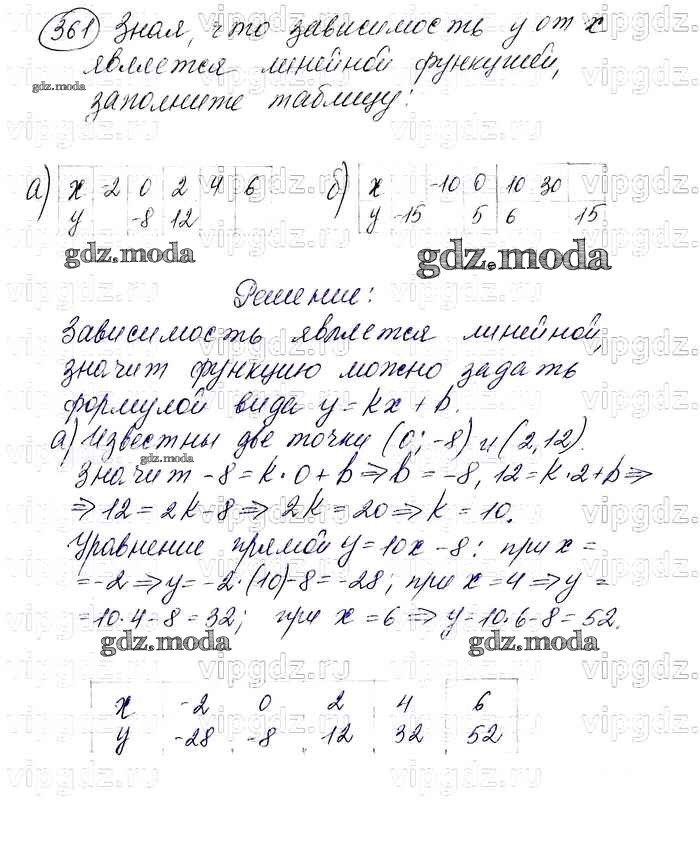 361 Зная, что зависимость y от x
является линейной функцией,
gdz.moda
заполните таблицу:
а) x -2 0 2 4 6
y -8 12
б) x -10 0 10 30
y -15 5 6 15
gdz.moda
gdz.moda
Решение:
Зависимость является линейной,
значит функцию можно задать
формулой вида y=kx+b.
а) Известны две точки (0; -8) и (2, 12).
gdz.moda
Значит -8=k·0+b⇒b=-8, 12=k·2+b⇒
⇒12=2k-8⇒2k=20⇒k=10.
Уравнение прямой y=10x-8: при x=
=-2⇒y=-2·(10)-8=-28; при x=4⇒y=
=10·4-8=32; при x=6⇒y=10·6-8=52.
gdz.moda
gdz.moda
x -2 0 2 4 6
y -28 -8 12 32 52
vipgdz.ru